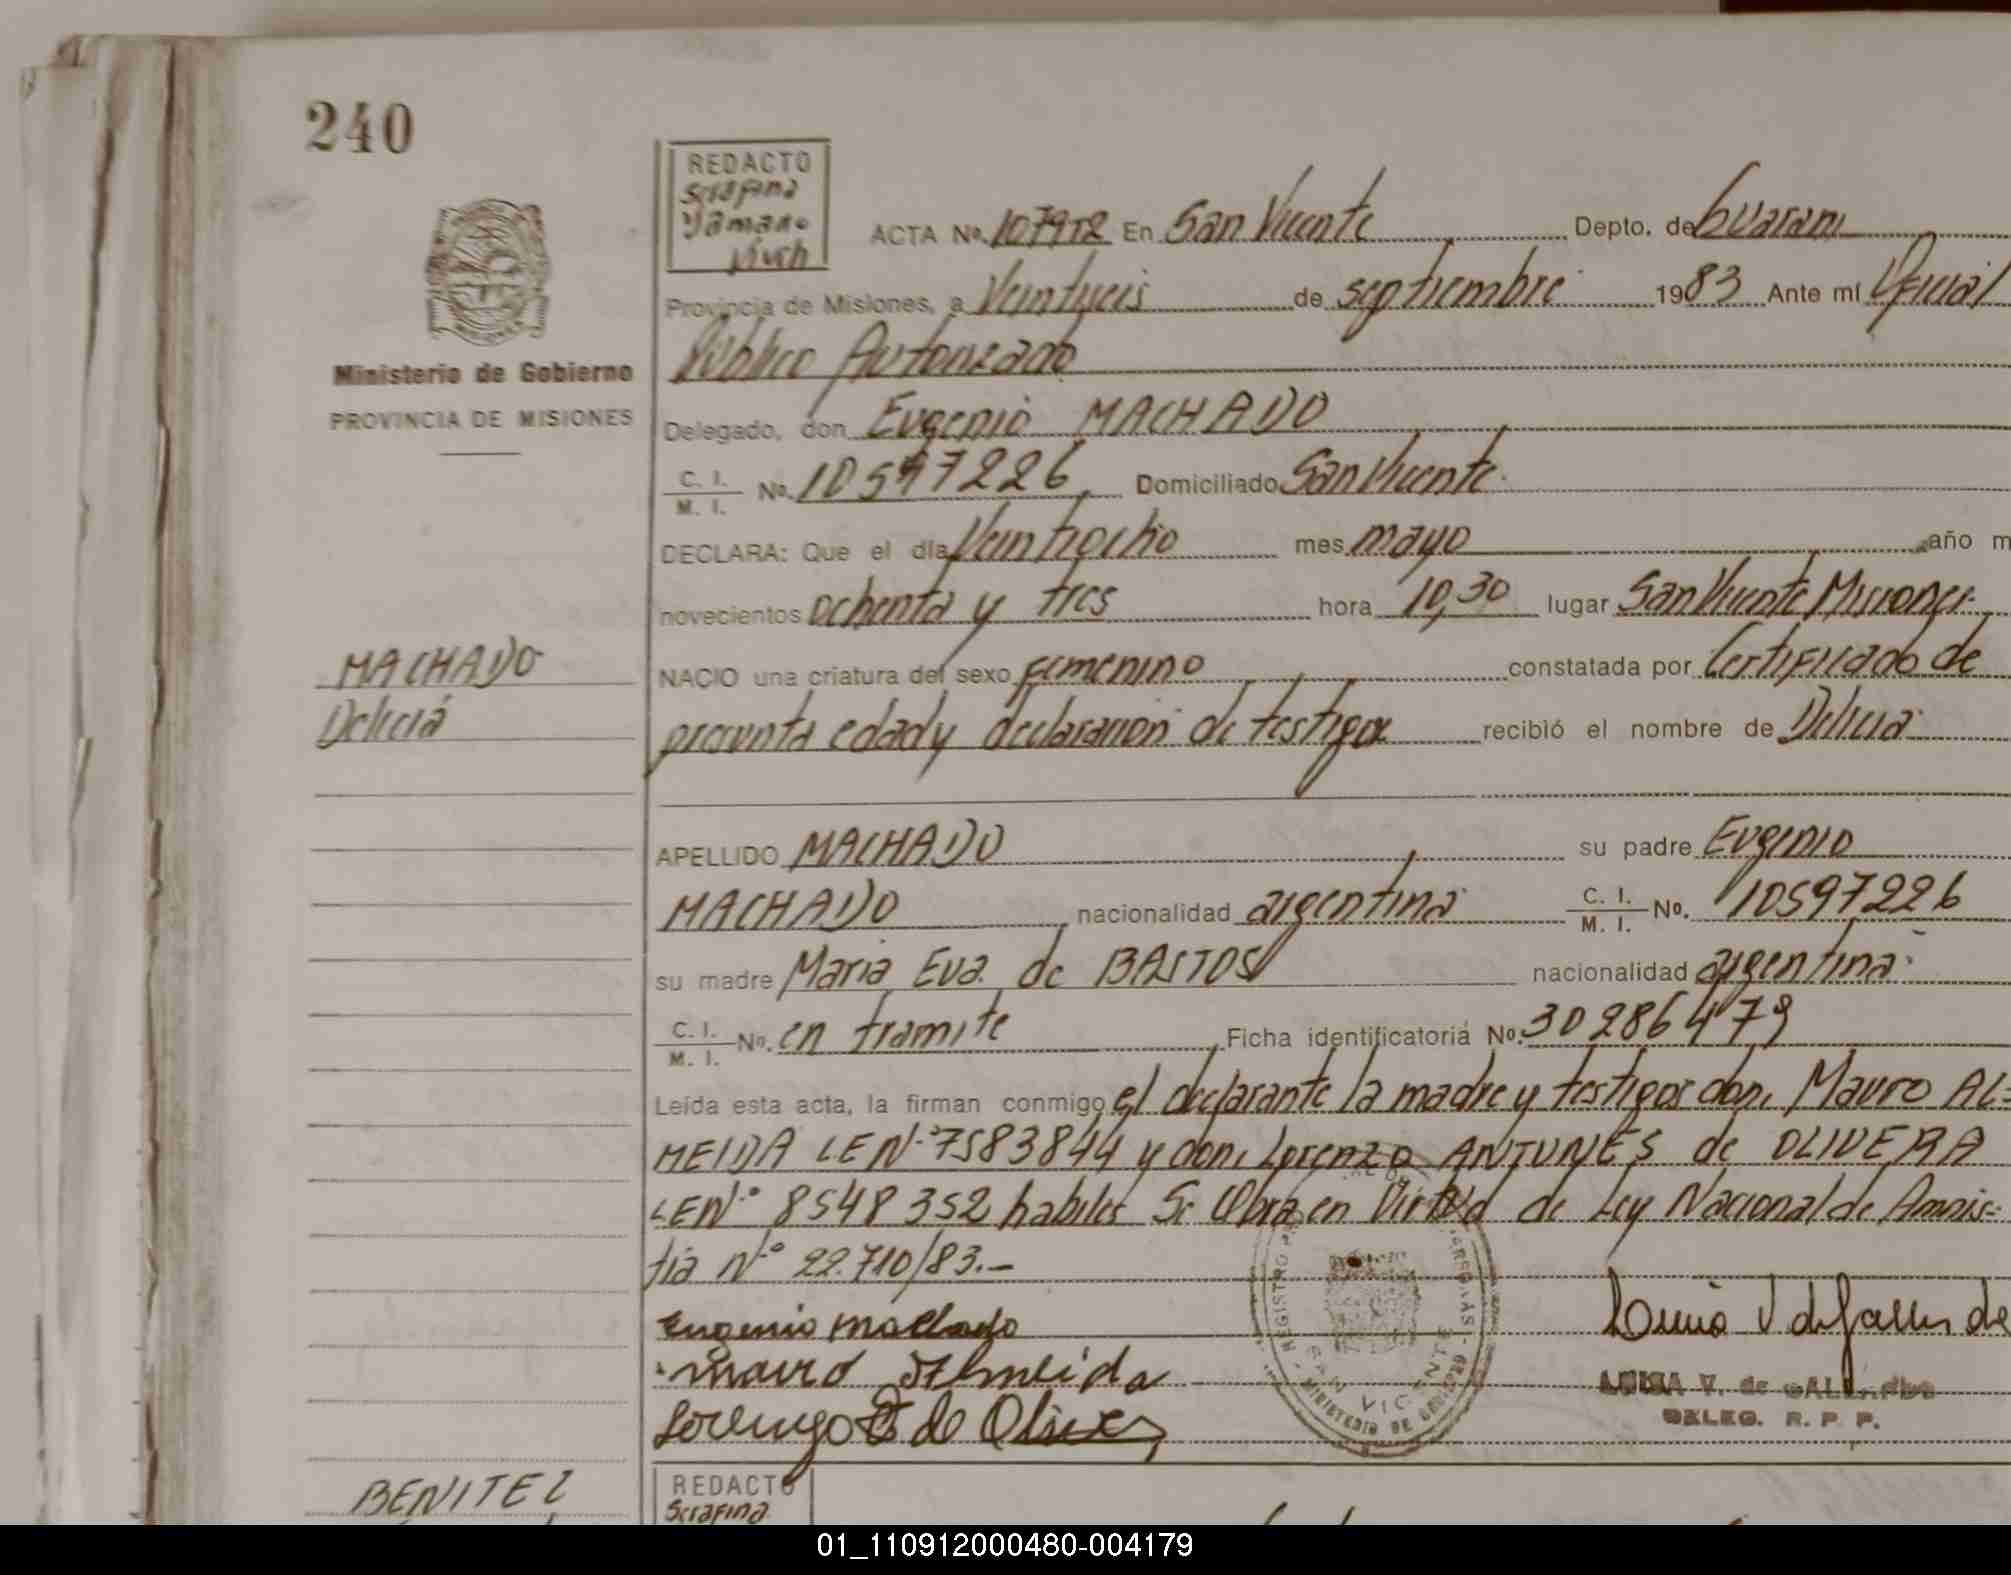 240
REDACTO
Serafina
Yamano
vich
ACTA Nº. En San Vicente Depto. de Guarani
Provincia de Misiones, a Veintiseis de septiembre 1983 Ante mí Oficial
Público Autorizado
Ministerio de Gobierno
PROVINCIA DE MISIONES
Delegado, don Eugenio MACHADO
C. I.
M. I. Nº. 10597226 Domiciliado San Vicente.
DECLARA: Que el día Veintiocho mes mayo año m
novecientos Ochenta y tres hora 10,30 lugar San Vicente Misiones.
MACHADO
Delicia
NACIO una criatura del sexo femenino constatada por Certificado de
presunta edad y declaración de testigos recibió el nombre de Delicia
APELLIDO MACHADO su padre Eugenio
MACHADO nacionalidad argentina C. I.
M. I. Nº. 10597226
su madre Maria Eva de BASTOS nacionalidad argentina
C. I.
M. I. Nº. en tramite Ficha identificatoria Nº. 30286479
Leída esta acta, la firman conmigo el declarante la madre y testigos don, Mauro AL=
MEIDA LE Nº 7583844 y don, Lorenzo ANTUNES de OLIVERA
LE Nº 8548352 habiles Se Obra en Virtud de Ley Nacional de Amnis=
tia Nº 22.710/83.-
Eugenio Machado
Mauro Almeida
Lorenzo de
REGISTRO
SAN VICENTE
MINISTERIO DE GOBIERNO
LUISA V. de
DELEG. R. P. P.
BENITEZ
REDACTO
Serafina
01_110912000480-004179